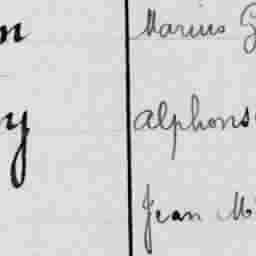 n Marius
y Alphons
Jean M